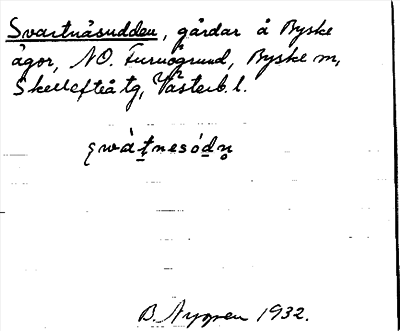 Svartnäsudden, gårdar å Byske
ägor, NO. Furuögrund, Byske m,
Skellefteå tg, Västerb. l.
ꞩwàt̲nesód̲n̥
B. Nygren 1932.